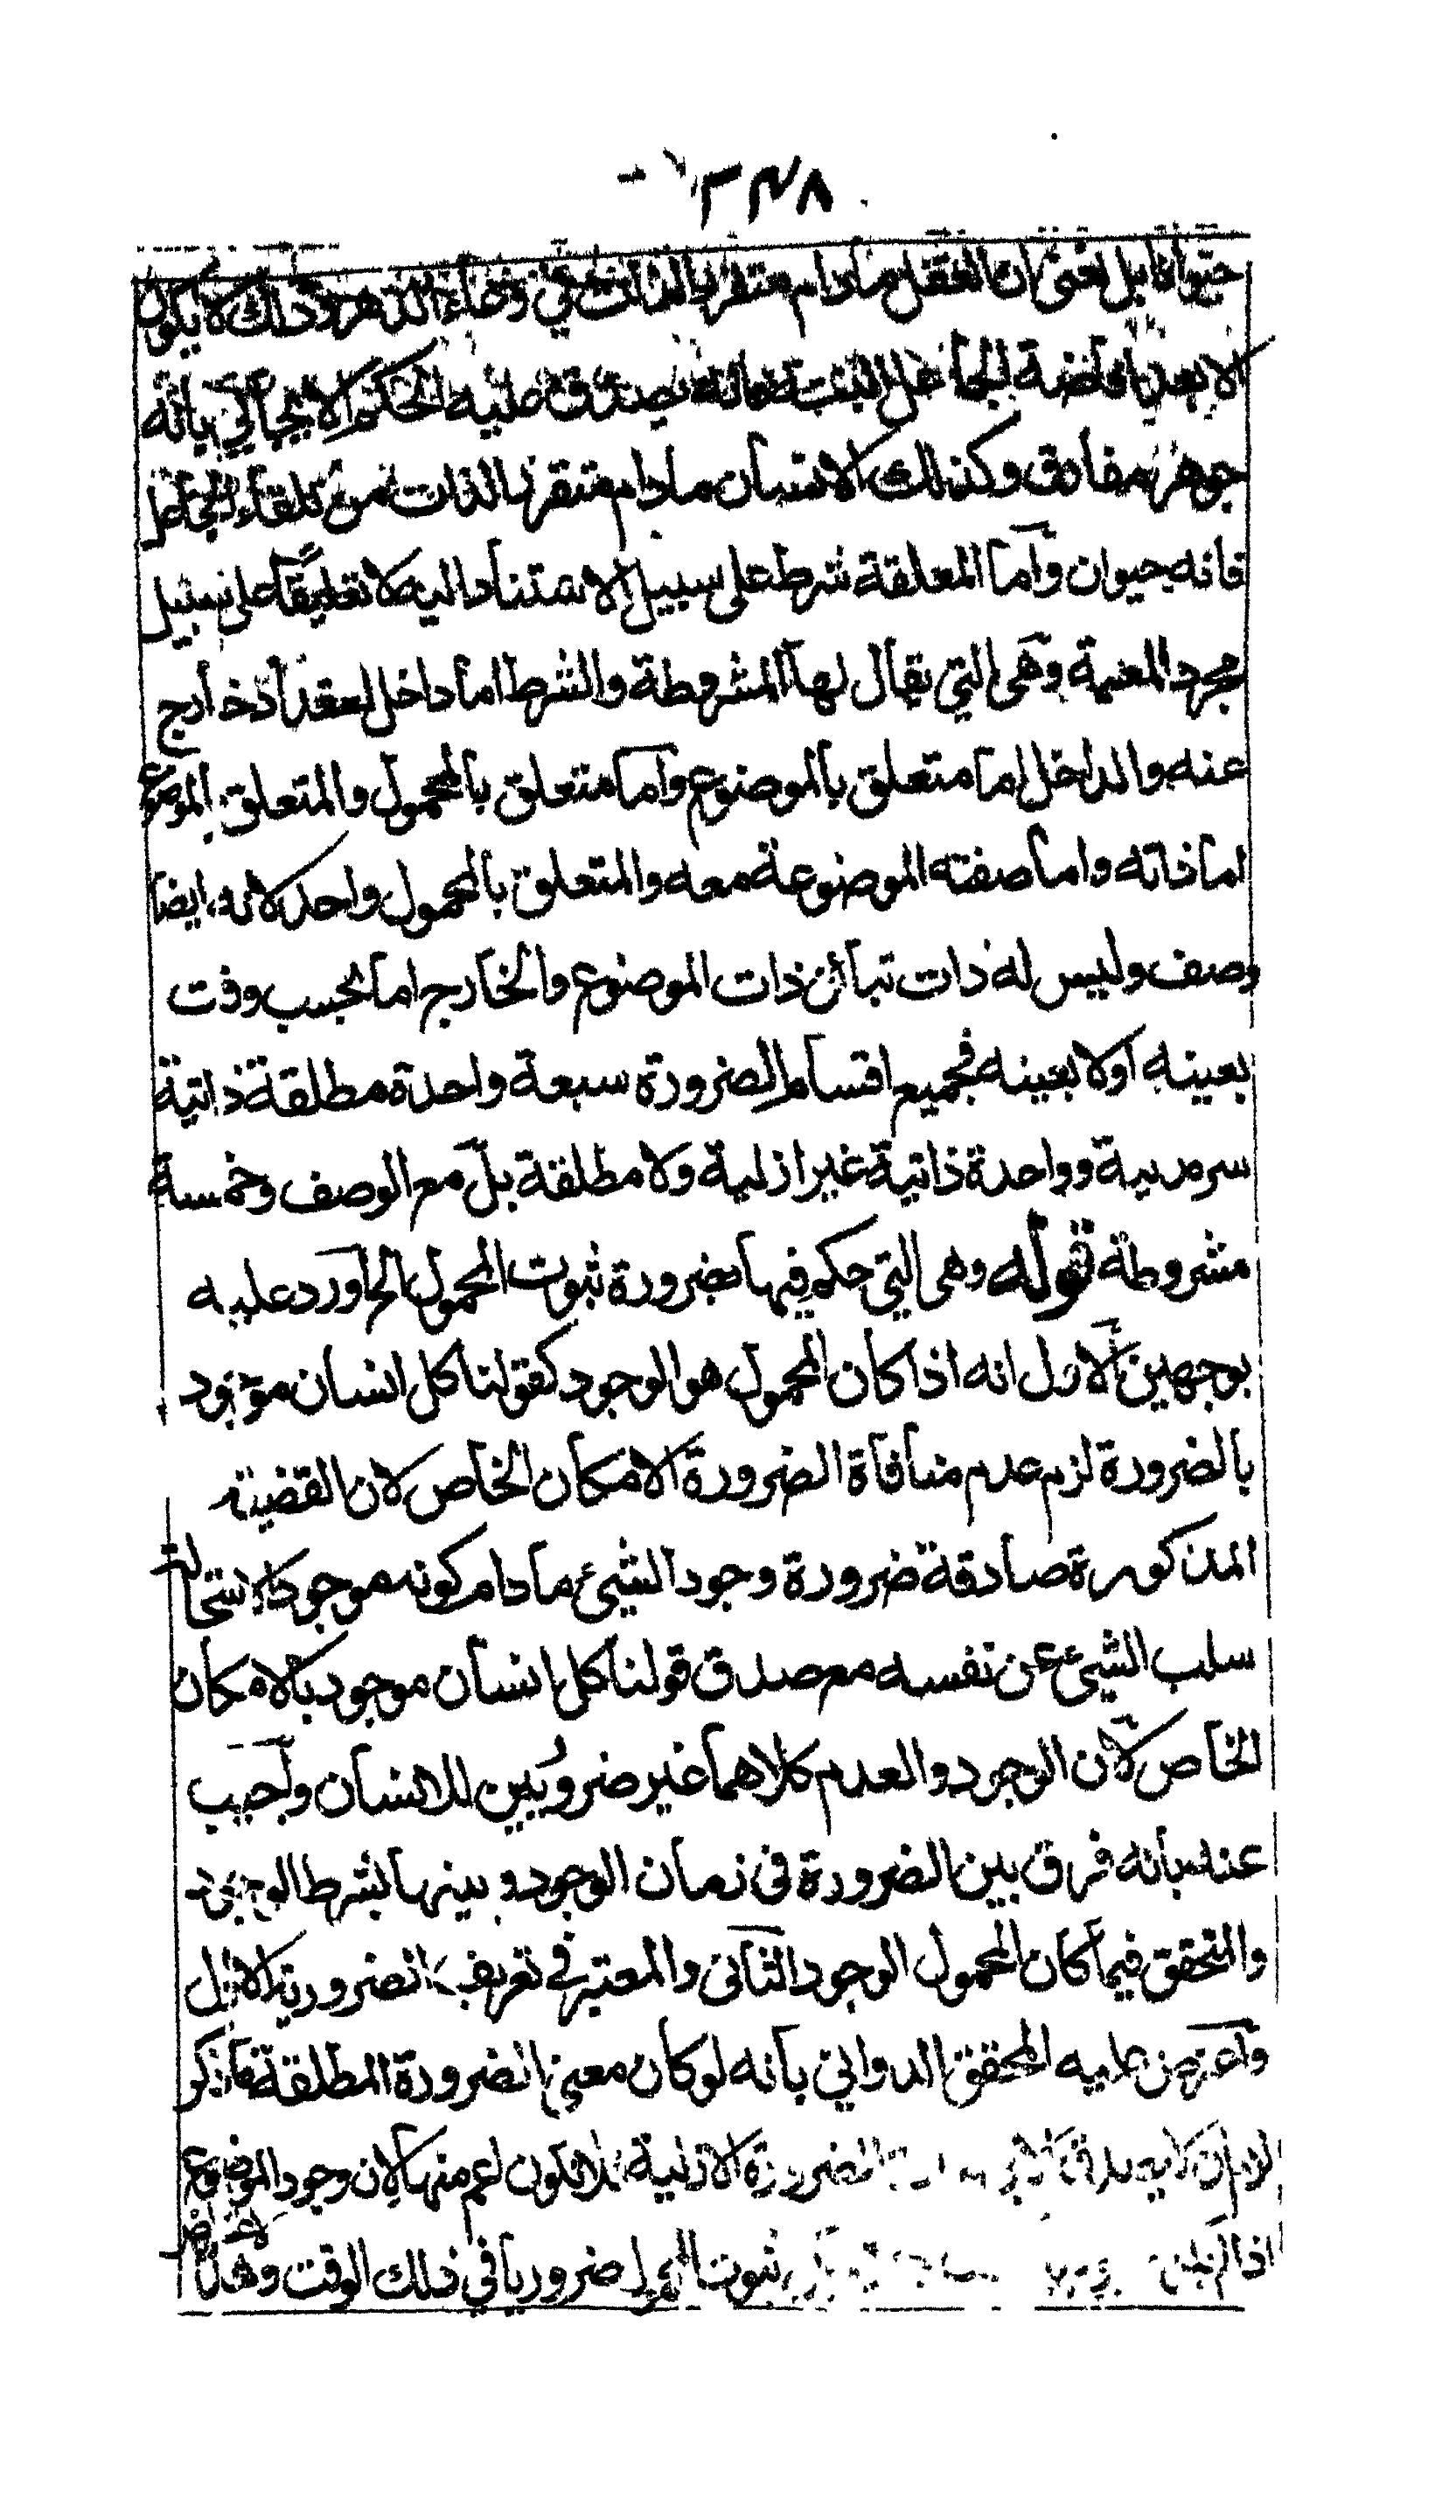 ٢٣٨
حيوانا بل نعنى ان العقل مادام متقرر الذات في وعاء الدهر وذلك لا يكون
الا بعد يا فاضة الجاعل البتة فانه يصدق عليه الحكم الايجابي بانه
جوهر مفارق وكذلك الانسان مادام متقرر الذات من تلقاء الجاعل
فانه حيوان واما المعلقة شرط على سبيل الاستناد اليه لا تعليقا على سبيل
مجرد المعية وهى التي يقال لها المشروطة والشرط اما داخل لعقد اذ خارج
عنه والداخل اما متعلق بالموضوع واما متعلق بالمحمول والمتعلق بالموضوع
اما ذاته واما صفته الموضوعة معه والمتعلق بالمحمول واحد لانه ايضا
وصف وليس له ذات تبائن ذات الموضوع والخارج اما بحسب وقت
بعينه اولا بعينه فجميع اقسام الضرورة سبعة واحدة مطلقة ذاتية
سرمدية وواحدة ذاتية غير ازلية ولا مطلقة بل مع الوصف وخمسة
مشروطة قوله وهى التي حكم فيها بضرورة ثبوت المحمول الخ اورد عليه
بوجهين الاول انه اذا كان المحمول هو الوجود كقولنا كل انسان موجود
بالضرورة لزم عدم منافاة الضرورة الامكان الخاص لان القضية
المذكورة صادقة ضرورة وجود الشيء مادام كونه موجودا لاستحالة
سلب الشيء عن نفسه مع صدق قولنا كل انسان موجود بالامكان
الخاص لان الوجود والعدم كلاهما غير ضروريين للانسان واجيب
عنه بانه فرق بين الضرورة فى زمان الوجود وبينها بشرط الوجود
والتحقق فيما كان المحمول الوجود الثانى والمعتبر في تعريف الضرورية الاول
واعترض عليه المحقق الدواني بانه لو كان معنى الضرورة المطلقة ما ذكر
لزم ان لا يصدق الضرورة الازلية فلا تكون اعم منها لان وجود الموضوع
اذا لم يكن ثبوت المحمول ضروريا في ذلك الوقت وهذا الاعتراض